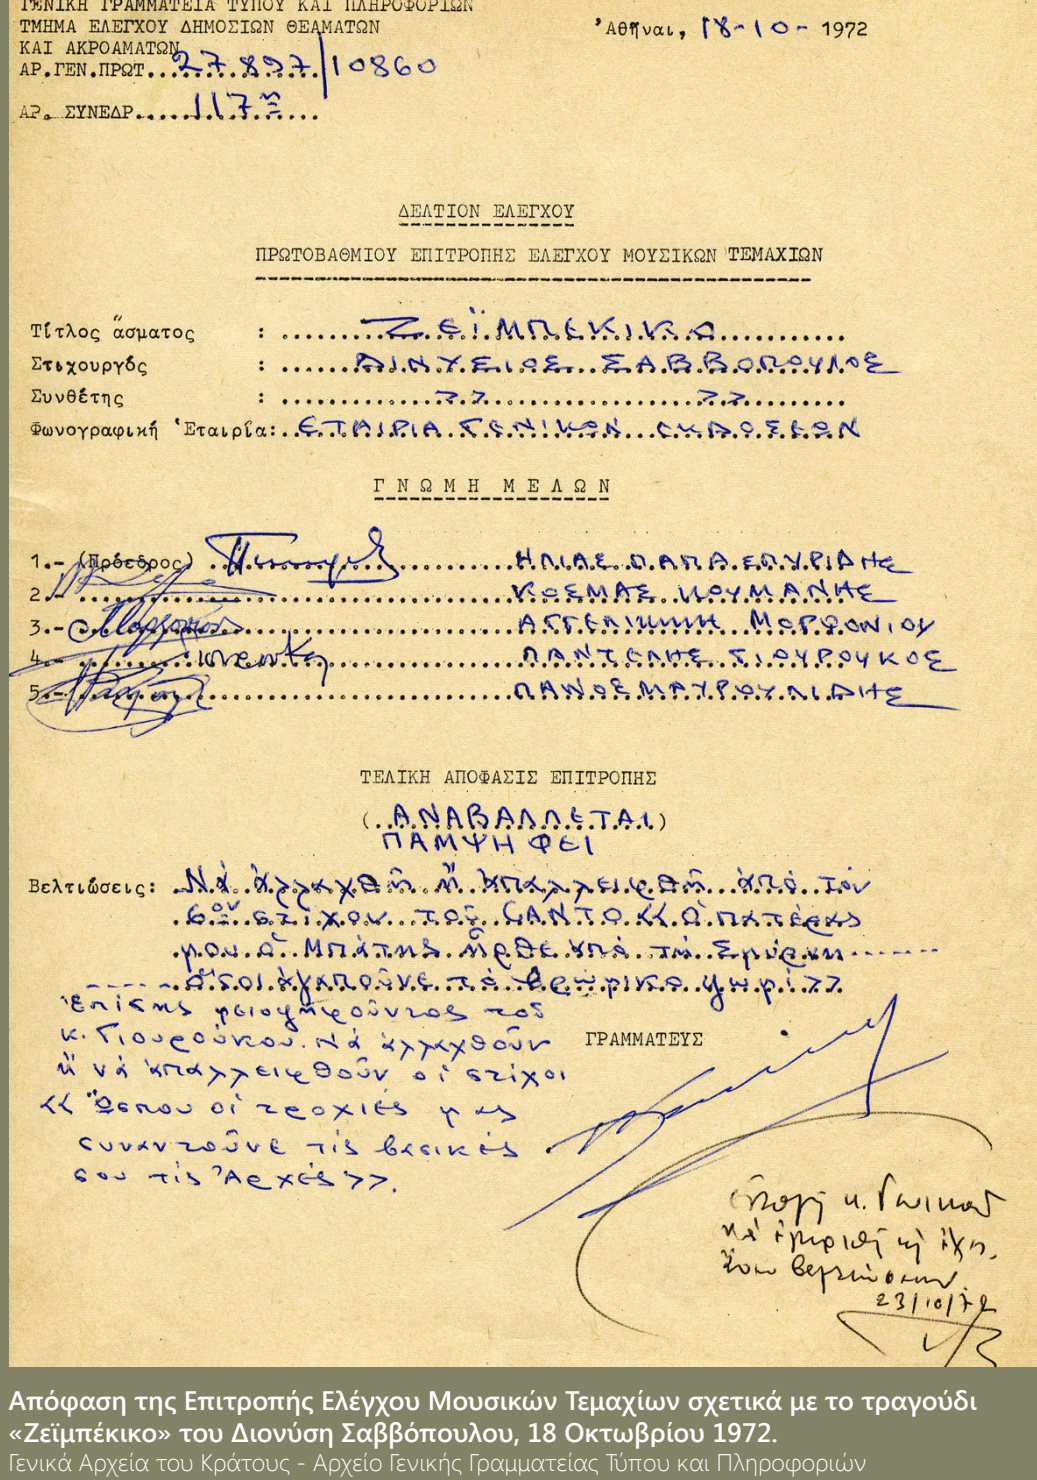 ΓΕΝΙΚΗ ΓΡΑΜΜΑΤΕΙΑ ΤΥΠΟΥ ΚΑΙ ΠΛΗΡΟΦΟΡΙΩΝ
ΤΜΗΜΑ ΕΛΕΓΧΟΥ ΔΗΜΟΣΙΩΝ ΘΕΑΜΑΤΩΝ
ΚΑΙ ΑΚΡΟΑΜΑΤΩΝ
Ἀθῆναι, 18-10- 1972
ΑΡ.ΓΕΝ.ΠΡΩΤ. 27897/10860
ΑΡ. ΣΥΝΕΔΡ. 117η
ΔΕΛΤΙΟΝ ΕΛΕΓΧΟΥ
ΠΡΩΤΟΒΑΘΜΙΟΥ ΕΠΙΤΡΟΠΗΣ ΕΛΕΓΧΟΥ ΜΟΥΣΙΚΩΝ ΤΕΜΑΧΙΩΝ
Τίτλος ἄσματος : ΖΕΪΜΠΕΚΙΚΟ
Στιχουργός : ΔΙΝΥΣΙΟΣ ΣΑΒΒΟΠΟΥΛΟΣ
Συνθέτης : >> >>
Φωνογραφική Ἑταιρία: ΕΤΑΙΡΙΑ ΓΕΝΙΚΩΝ ΕΚΔΟΣΕΩΝ
ΓΝΩΜΗ ΜΕΛΩΝ
1.- (Πρόεδρος) ΗΛΙΑΣ ΠΑΠΑΣΠΥΡΙΔΗΣ
2.- ΚΟΣΜΑΣ ΚΟΥΜΑΝΗΣ
3.- ΑΓΓΕΛΙΚΗ ΜΟΡΦΟΝΙΟΥ
4.- ΠΑΝΤΕΛΗΣ ΓΙΟΥΡΟΥΚΟΣ
5.- ΠΑΝΟΣ ΜΑΥΡΟΥΛΙΔΗΣ
ΤΕΛΙΚΗ ΑΠΟΦΑΣΙΣ ΕΠΙΤΡΟΠΗΣ
(ΑΝΑΒΑΛΛΕΤΑΙ)
ΠΑΜΨΗΦΕΙ
Βελτιώσεις: Νά ἀλλαχθῆ ἤ ἀπαλλειφθῆ ἀπό τον
6ον στίχον τοῦ CANTO << Ὁ πατέρας
μου ὁ Μπάτης ἦρθε ἀπό τή Σμύρνη ------
------ ὅσοι ἀγαποῦνε τό βρώμικο ψωμί >>
Ἐπίσης μειοψηφοῦντος τοῦ
κ. Γιουρούκου. Νά ἀλλαχθοῦν
ἤ νά ἀπαλλειφθοῦν οἱ στίχοι
<< Ὥσπου οἱ τροχιές μας
συναντοῦνε τίς βασικές
σου τίς Ἀρχές >>.
ΓΡΑΜΜΑΤΕΥΣ
23/10/72
Απόφαση της Επιτροπής Ελέγχου Μουσικών Τεμαχίων σχετικά με το τραγούδι
«Ζεϊμπέκικο» του Διονύση Σαββόπουλου, 18 Οκτωβρίου 1972.
Γενικά Αρχεία του Κράτους - Αρχείο Γενικής Γραμματείας Τύπου και Πληροφοριών